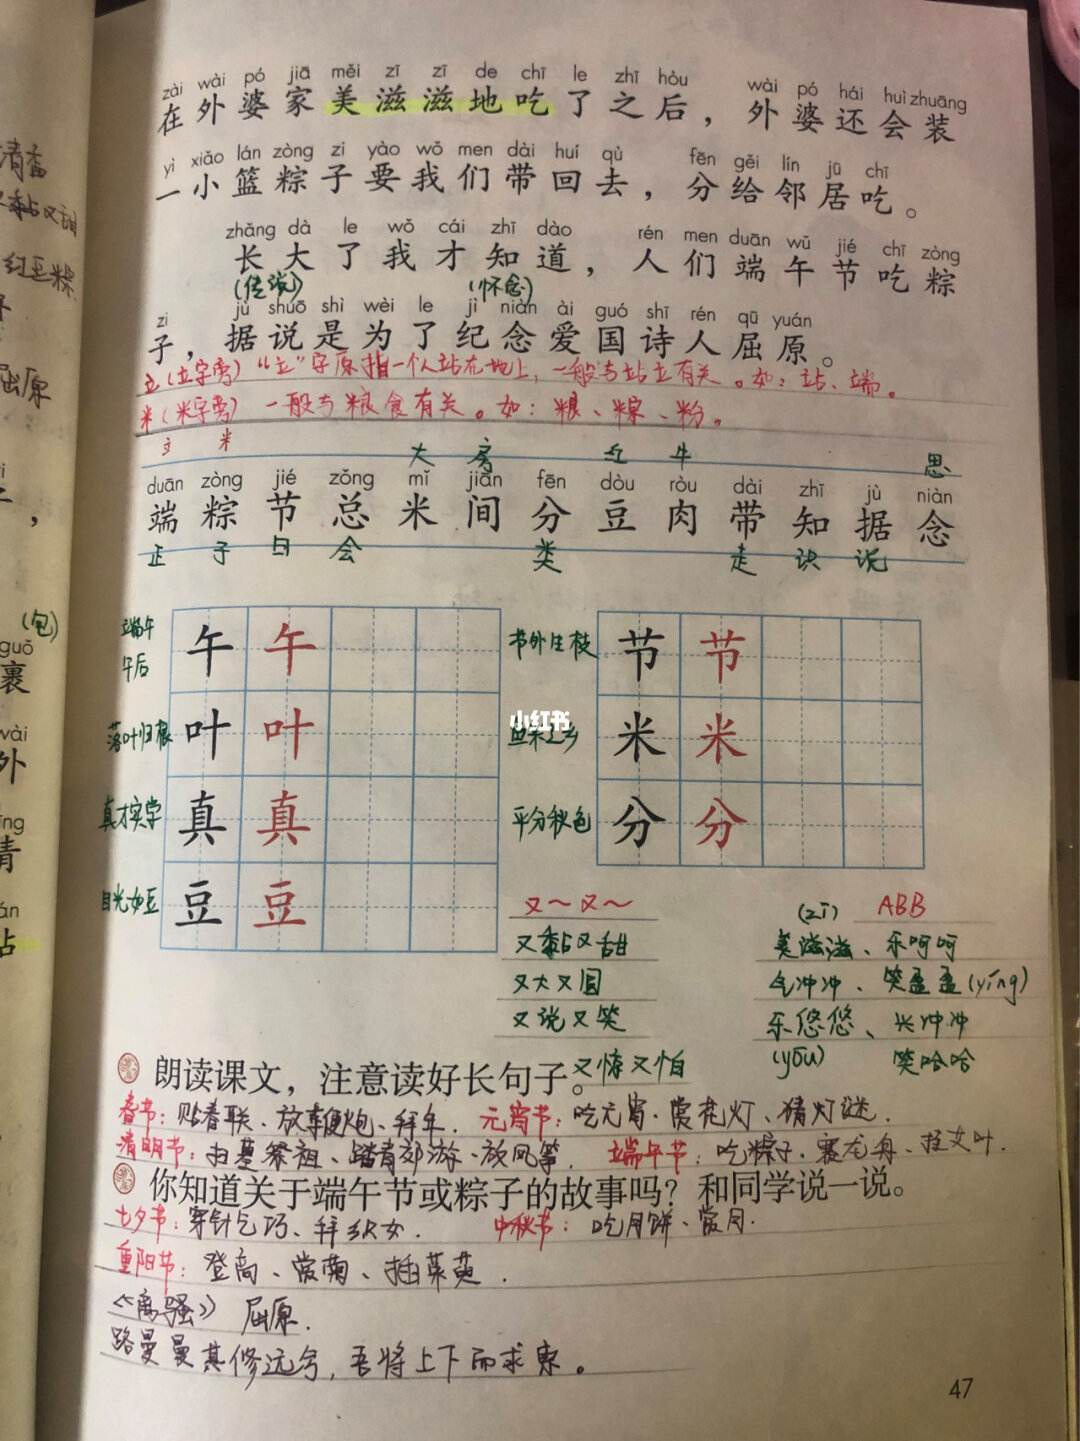 zài wài pó jiā měi zī zī de chī le zhī hòu wài pó hái huì zhuāng
在外婆家美滋滋地吃了之后，外婆还会装
yì xiǎo lán zòng zi yào wǒ men dài huí qù fēn gěi lín jū chī
一小篮粽子要我们带回去，分给邻居吃。
zhǎng dà le wǒ cái zhī dào rén men duān wǔ jié chī zòng
长大了我才知道，人们端午节吃粽
(传说) (怀念)
zi jù shuō shì wèi le jì niàn ài guó shī rén qū yuán
子，据说是为了纪念爱国诗人屈原。
立(立字旁) "立"字原指一个人站在地上，一般与站立有关。如：站、端。
米(米字旁) 一般与粮食有关。如：粮、粽、粉。
立 米 大 房 牛 思
duān zòng jié zǒng mǐ jiān fēn dòu ròu dài zhī jù niàn
端 粽 节 总 米 间 分 豆 肉 带 知 据 念
正 子 日 会 类 走 识 说
端午
午后
午 午
书外生枝
节 节
落叶归根
叶 叶
鱼米之乡
米 米
真才实学
真 真
平分秋色
分 分
目光如豆
豆 豆
又～又～
又黏又甜
又大又圆
又说又笑
又惊又怕
(zī) ABB
美滋滋、乐呵呵
气冲冲、笑盈盈(yíng)
乐悠悠、兴冲冲
(yōu) 笑哈哈
朗读课文，注意读好长句子。
春节：贴春联、放鞭炮、拜年. 元宵节：吃元宵、赏花灯、猜灯谜.
清明节：扫墓祭祖、踏青郊游、放风筝. 端午节：吃粽子、赛龙舟、挂艾叶.
你知道关于端午节或粽子的故事吗？和同学说一说。
七夕节：穿针乞巧、拜织女. 中秋节：吃月饼、赏月.
重阳节：登高、赏菊、插茱萸.
《离骚》 屈原.
路曼曼其修远兮，吾将上下而求索。
47
清香
又黏又甜
红豆粽
屈原
(包)
guǒ
裹
wài
外
小红书